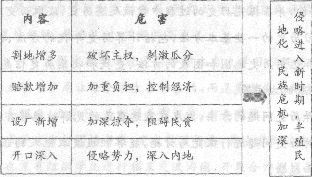 内容 危害
割地增多 破坏主权,刺激瓜分
赔款增加 加重负担,控制经济
设厂新增 加深掠夺,阻碍民资
开口深入 侵略势力,深入内地
侵略进入新时期,半殖民
地化 民族危机加深